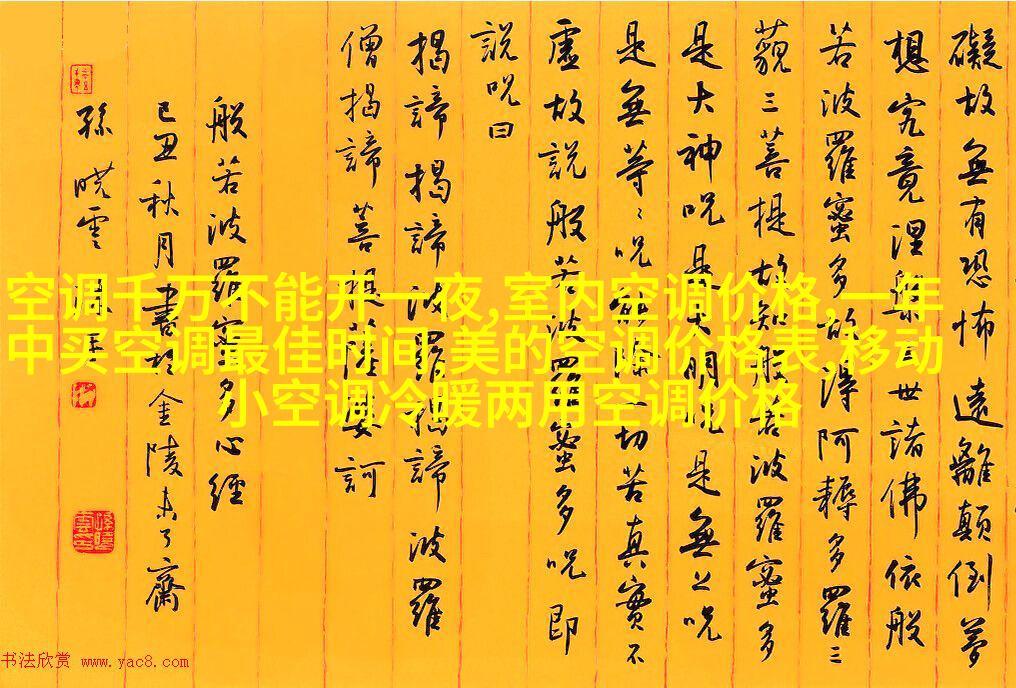 礙故無有恐怖遠離顛倒夢
想究竟涅槃三世諸佛依般
若波羅蜜多故得阿耨多羅三
藐三菩提故知般若波羅蜜多
是大神呪是大明呪是無上呪
是無等〻呪能除一切苦真實不
虛故說般若波羅蜜多呪即
說呪曰
揭諦揭諦波羅揭諦波羅
僧揭諦菩提薩婆訶
般若波羅蜜多心經
己丑秋月書於金陵未了齋
孫曉雲
空调千万不能开一夜,室内空调价格,一年
中买空调最佳时间,美的空调价格表,移动
小空调冷暖两用空调价格
书法欣赏 www.yac8.com